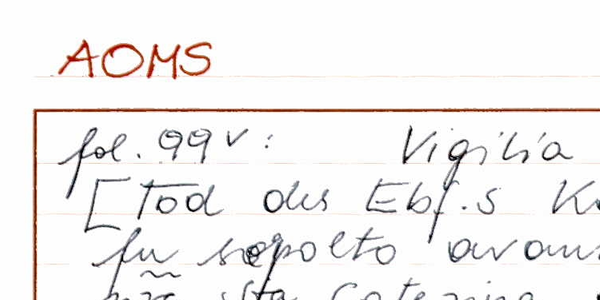 AOMS
fol. 99v: Vigilia
[Tod des Ebf.s
fu sepolto
sta Caterina